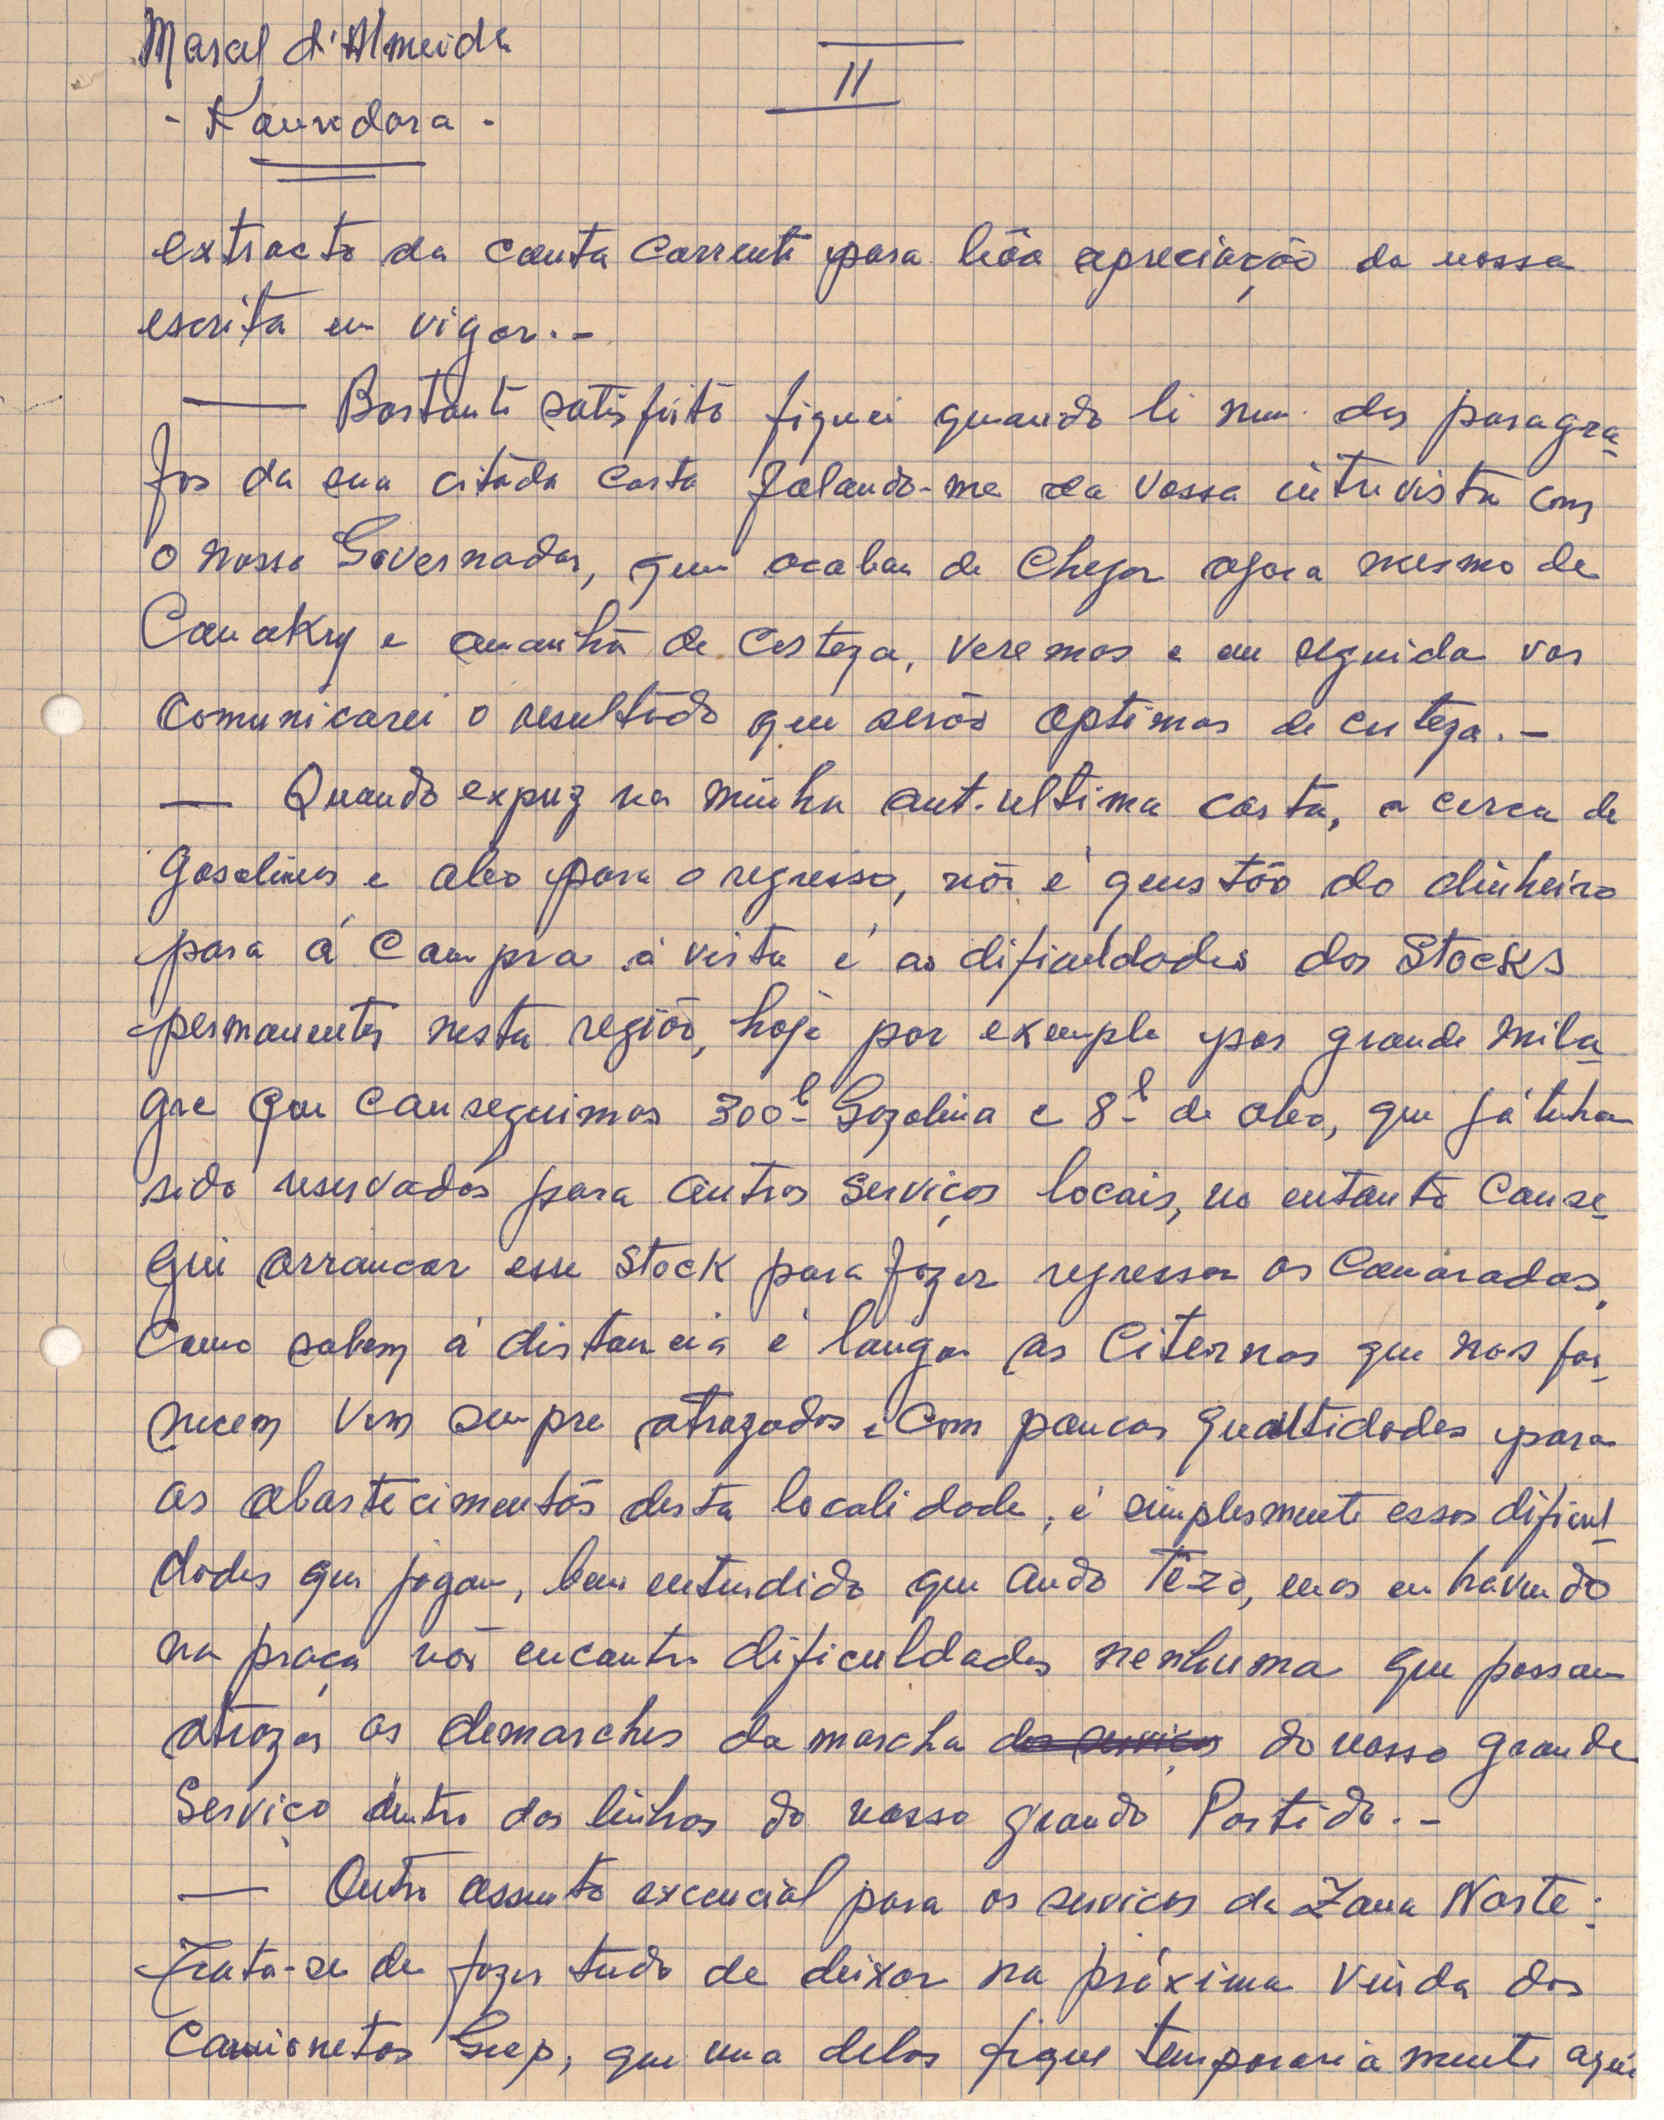 Marcal d'Almeida
II
- Koundara -
extracto da conta corrente para bôa apreciação da nossa
escrita em vigor.-
— Bastante satisfeito fiquei quando li num dos paragra-
fos da sua citada carta falando-me da vossa intrevista com
o nosso Governador, que acabou de chegar agora mesmo de
Conakry e amanhã de certeza, veremos e em seguida vos
comunicarei o resultado que serão optimos de certeza.-
— Quando expuz na minha ant-ultima carta, a cerca de
gasolinas e oleo para o regresso, não é questão do dinheiro
para á compra á vista é as dificuldades dos Stocks
permanentes nesta região, hoje por exemplo por grande mila-
gre que conseguimos 300l- Gazolina e 8l- de oleo, que já tinha
sido reservados para outros serviços locais, no entanto conse-
gui arrancar esse Stock para fazer regressar os Camaradas.
Como sabem á distancia é longa as Citernas que nos for-
necem vem sempre atrazados e com poucas quantidades para
os abastecimentos desta localidade, é simplesmente essas dificul-
dades que jogam, bem entendido que ando têzo, mas em havendo
na praça não encontro dificuldades nenhuma que possam
atrazar as demarches da marcha dos serviços do nosso grande
Serviço dentro das linhas do nosso grande Partido.-
— Outro assunto excencial para os serviços da Zona Norte:
Trata-se de fazer tudo de deixar na próxima vinda das
Camionetas Geep, que uma delas fique temporariamente aqui